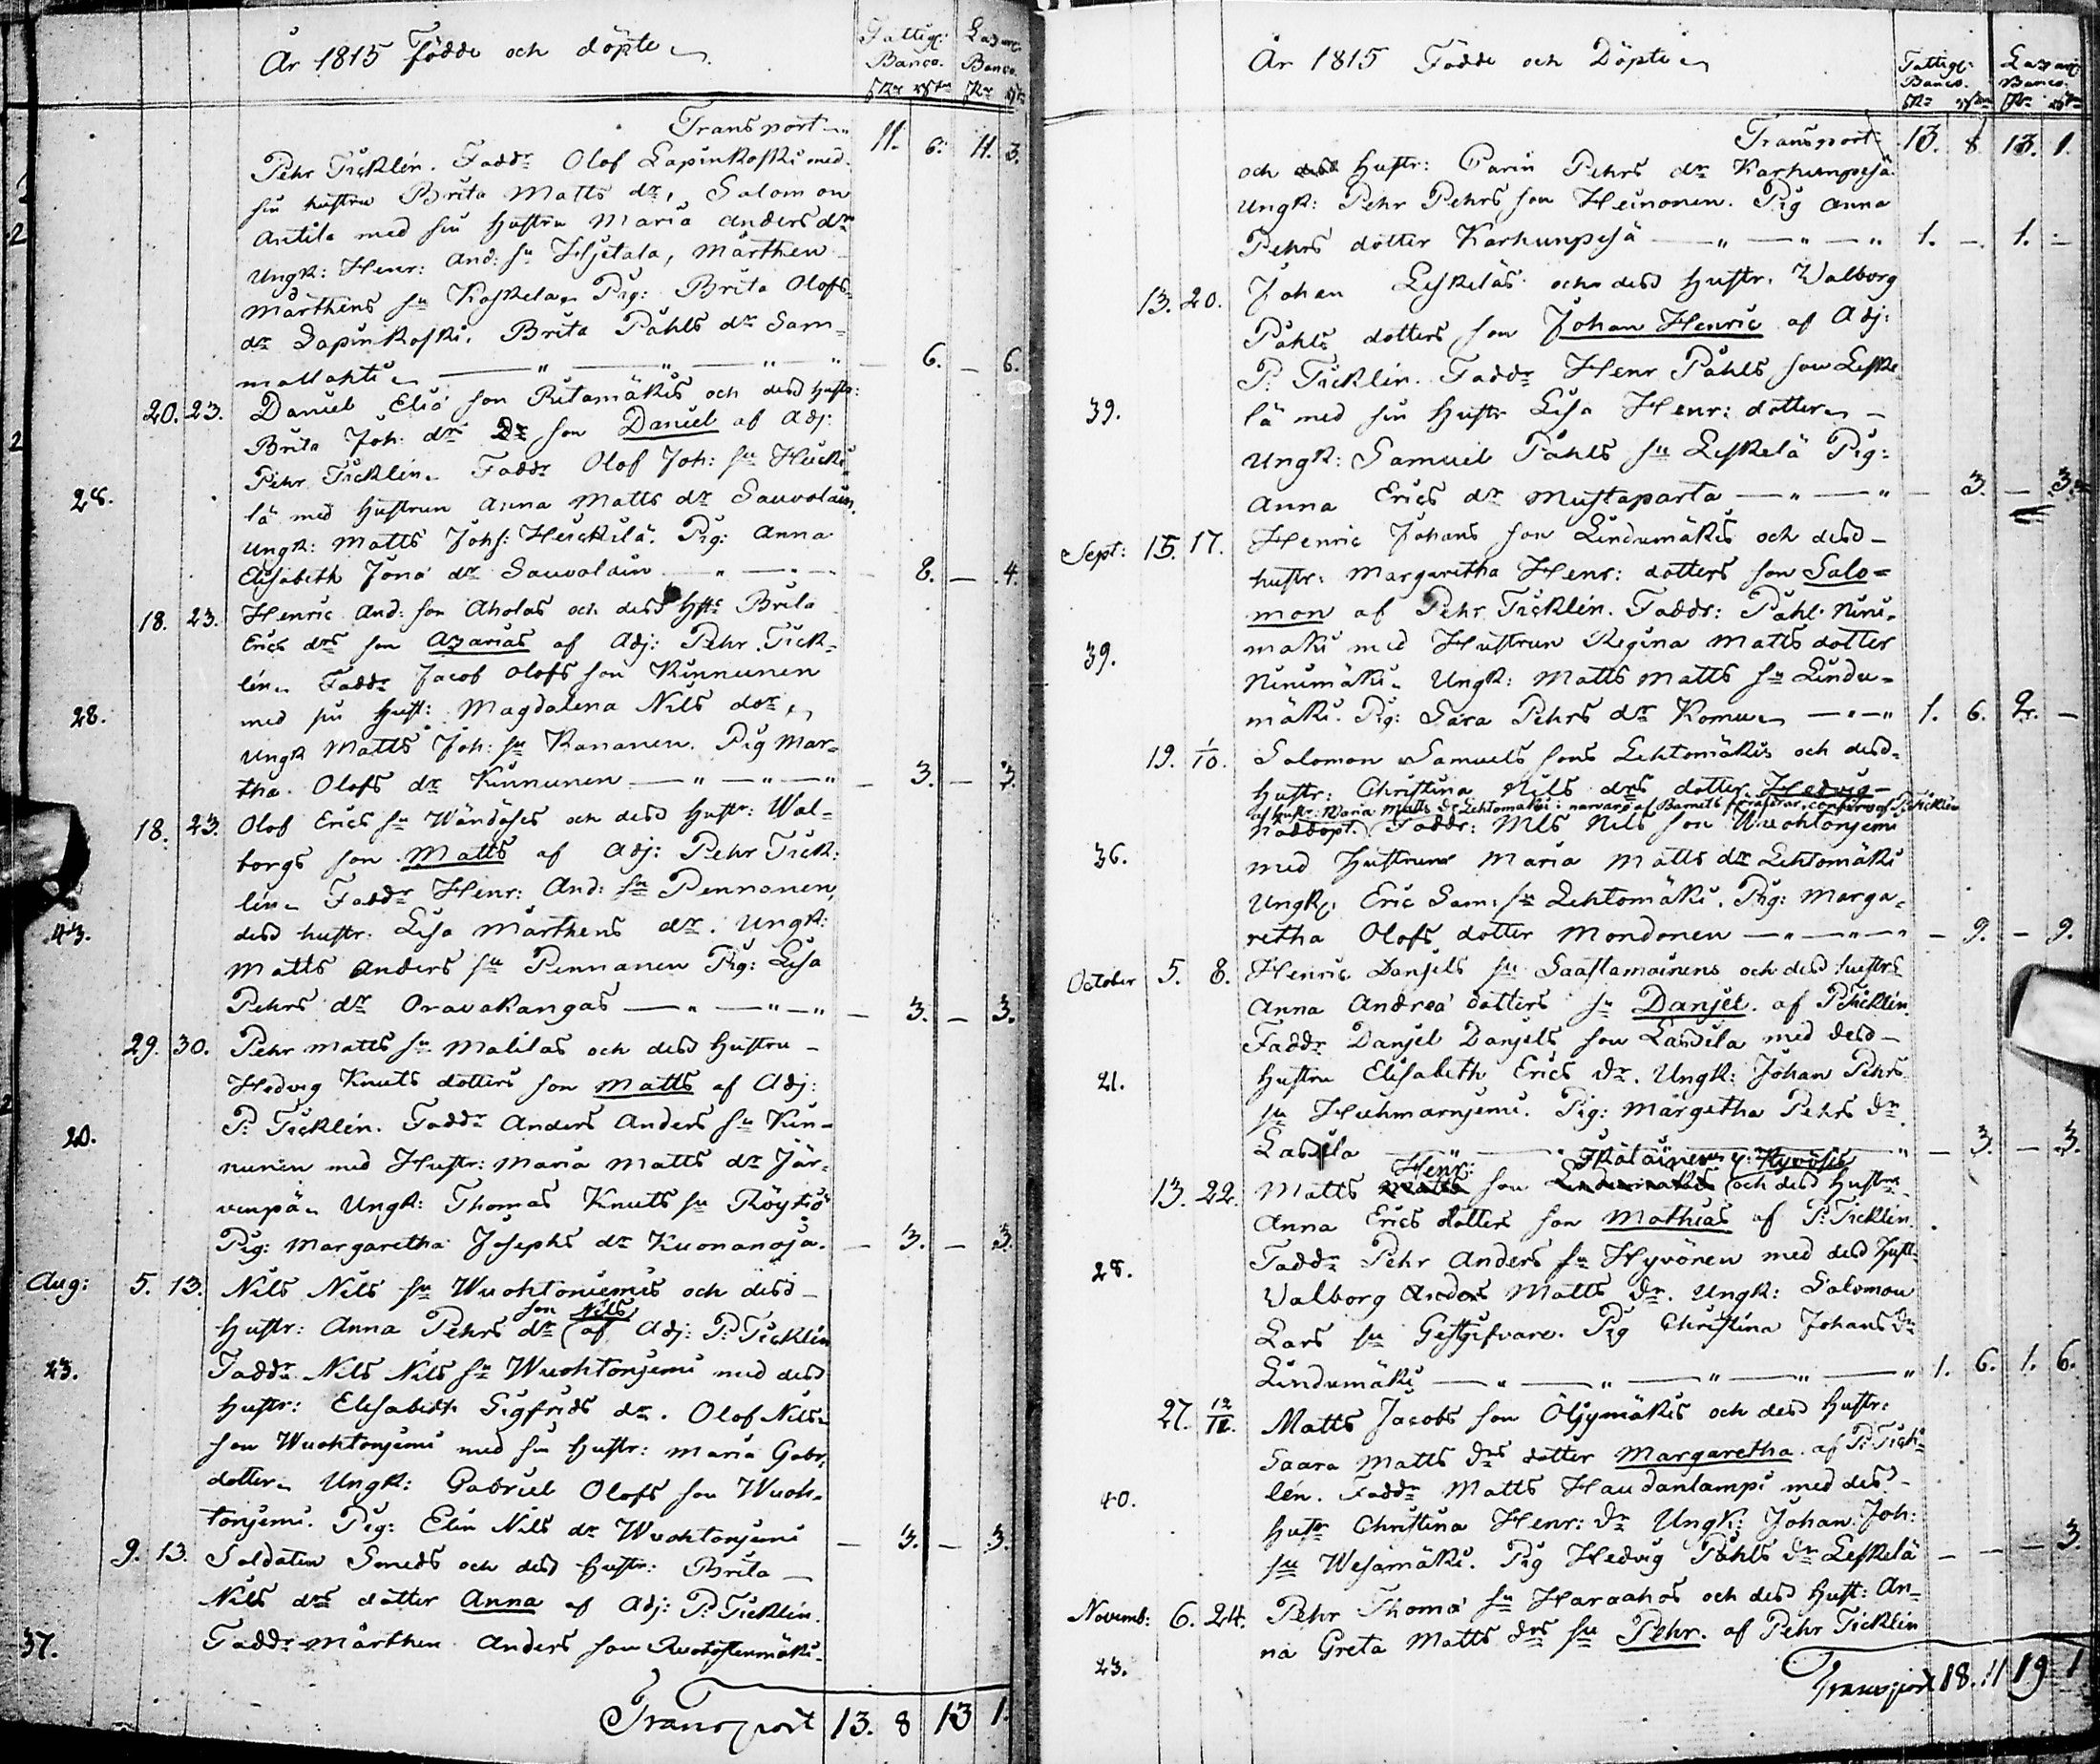 År 1815 Födde och döpte
Fattigc: Banco. Lazar. Banco.
Transport 11. 6. 11. 3.
Pehr Ticklén. Faddr Olof Lapinkoski med
sin hustru Brita Matts dr, Salomon
Antila med sin Hustru Maria Anders dr
Ungk: Henr: And: sn Hjetala, Mårthen
Mårthens sn Koskela. Pig: Brita Olofs
dr Lapinkoski. Brita Påhls dr Sam-
mallahti — 6. — 6.
20. 23. Daniel Eliæ son Ritamäkis och desd Hustr:
Brita Joh: drs son Daniel af Adj:
Pehr Ticklén. Faddr Olof Joh: sn Heicki-
28. lä med Hustrun Anna Matts dr Sauvolain.
Ungk: Matts Johs: Heickilä. Pig: Anna
Elisabeth Jonæ dr Sauvolain — 8. — 4.
18. 23. Henric And: son Aholas och desd Hstr Brita
Erics drs son Azarias af Adj: Pehr Tick-
lén. Faddr Jacob Olofs son Kinnunen
28. med sin Hust: Magdalena Nils dotr,
Ungk Matts Joh: sn Kananen. Pig Mar-
tha Olofs dr Kinnunen — 3. — 3.
18. 23. Olof Erics sn Wändäses och desd Hustr: Wal-
borgs son Matts af Adj: Pehr Tick-
lén. Faddr Henr: And: sn Pennanen,
43. desd hustr. Lisa Mårthens dr. Ungk:
Matts Anders sn Pennanen Pig: Lisa
Pehrs dr Oravakangas — 3. — 3.
29. 30. Pehr Matts sn Malilas och desd Hustru
Hedvig Knuts dotters son Matts af Adj:
P: Ticklén. Faddr Anders Anders sn Kin-
20. nunen med Hustr: Maria Matts dr Jär-
venpä. Ungk: Thomas Knuts sn Röytiö
Pig: Margaretha Josephs dr Kuonanoja. — 3. — 3.
Aug: 5. 13. Nils Nils sn Wuohtoniemis och desd
son Nils
Hustr: Anna Pehrs dr af Adj: P: Ticklén
23. Faddr Nils Nils sn Wuohtonjemi med desd
Hustr: Elisabeth Sigfrids dr. Olof Nils
son Wuohtonjemi med sin Hustr: Maria Gabr.
dotter. Ungk: Gabriel Olofs son Wuoh-
tonjemi. Pig: Elin Nils dr Wuohtonjemi — 3. — 3.
9. 13. Soldaten Smeds och desd Hustr: Brita
Nils drs dotter Anna af Adj: P: Ticklén.
37. Faddr Mårthen Anders son
Transport 13. 8 13 1.
År 1815 Födde och Döpte
Fattigc: Banco. Lazar Banco
Transport 13. 8 13. 1.
och desd Hustr: Carin Pehrs dr Karhunpesä.
Ungk: Pehr Pehrs son Heinonen. Pig Anna
Pehrs dotter Karhunpesä — 1. — 1. —
13. 20. Johan Leskeläs och desd Hustr. Walborg
Påhls dotters son Johan Henric af Adj:
P: Ticklén. Faddr Henr Påhls son Leske
39. lä med sin Hustr Lisa Henr: dotter
Ungk: Samuel Påhls sn Leskelä Pig:
Anna Erics dr Mustaparta — 3. — 3.
Sept: 15. 17. Henric Johans son Lindumäkis och desd
hustr: Margaretha Henr: dotters son Salo-
mon af Pehr Ticklén. Faddr: Påhl Nini-
39. mäki med Hustrun Regina Matts dotter
Ninimäki. Ungk: Matts Matts sn Lindu-
mäki. Pig: Sara Pehrs dr Komu — 1. 6. 2. —
19. 1/10. Salomon Samuels sons Lehtomäkis och desd
Hustr: Christina Nils drs dotter Hedvig
af Hustr: Maria Matts dr Lehtomäki i närvaro af Barnets föräldrar, confirm. af P: Ticklén
Nöddöpt. Faddr: Nils Nils son Wuohtonjemi
36. med Hustrun Maria Matts dr Lehtomäki
Ungk. Eric Sam: sn Lehtomäki. Pig: Marga-
retha Olofs dotter Mondonen — 9. — 9.
October 5. 8. Henric Danjels sn Saastamoinens och desd hustrs
Anna Andreæ dotters sn Danjel af P Ticklén.
Faddr Danjel Danjels son Lassila med desd
21. Hustru Elisabeth Erics dr. Ungk: Johan Pehrs
sn Huhmarnjemi. Pig: Margetha Pehrs dr
Lassila — 3. — 3.
Henr: Ikäläinen
13. 22. Matts Matts son Lindumäkis och desd Hustru
Anna Erics dotters son Mathias af P: Ticklén.
28. Faddr Pehr Anders sn Hyvönen med desd Hust:
Valborg Anders Matts dr. Ungk: Salomon
Lars sn Gestgifvare. Pig Christina Johans dr
Lindumäki — 1. 6. 1. 6.
27. 12/11. Matts Jacobs son Öljymäkis och desd Hustr:
Saara Matts drs dotter Margaretha af P: Tick-
40. lén. Faddr Matts Haudanlampi med desd
Hustr Christina Henr: dr Ungk: Johan Joh:
sn Wesamäki. Pig Hedvig Påhls dr Leskelä — — — 3.
Novemb: 6. 24. Pehr Thomæ sn Haraahos och desd Hust: An-
23. na Greta Matts drs sn Pehr. af Pehr Ticklén
Transport 18. 11 19 1